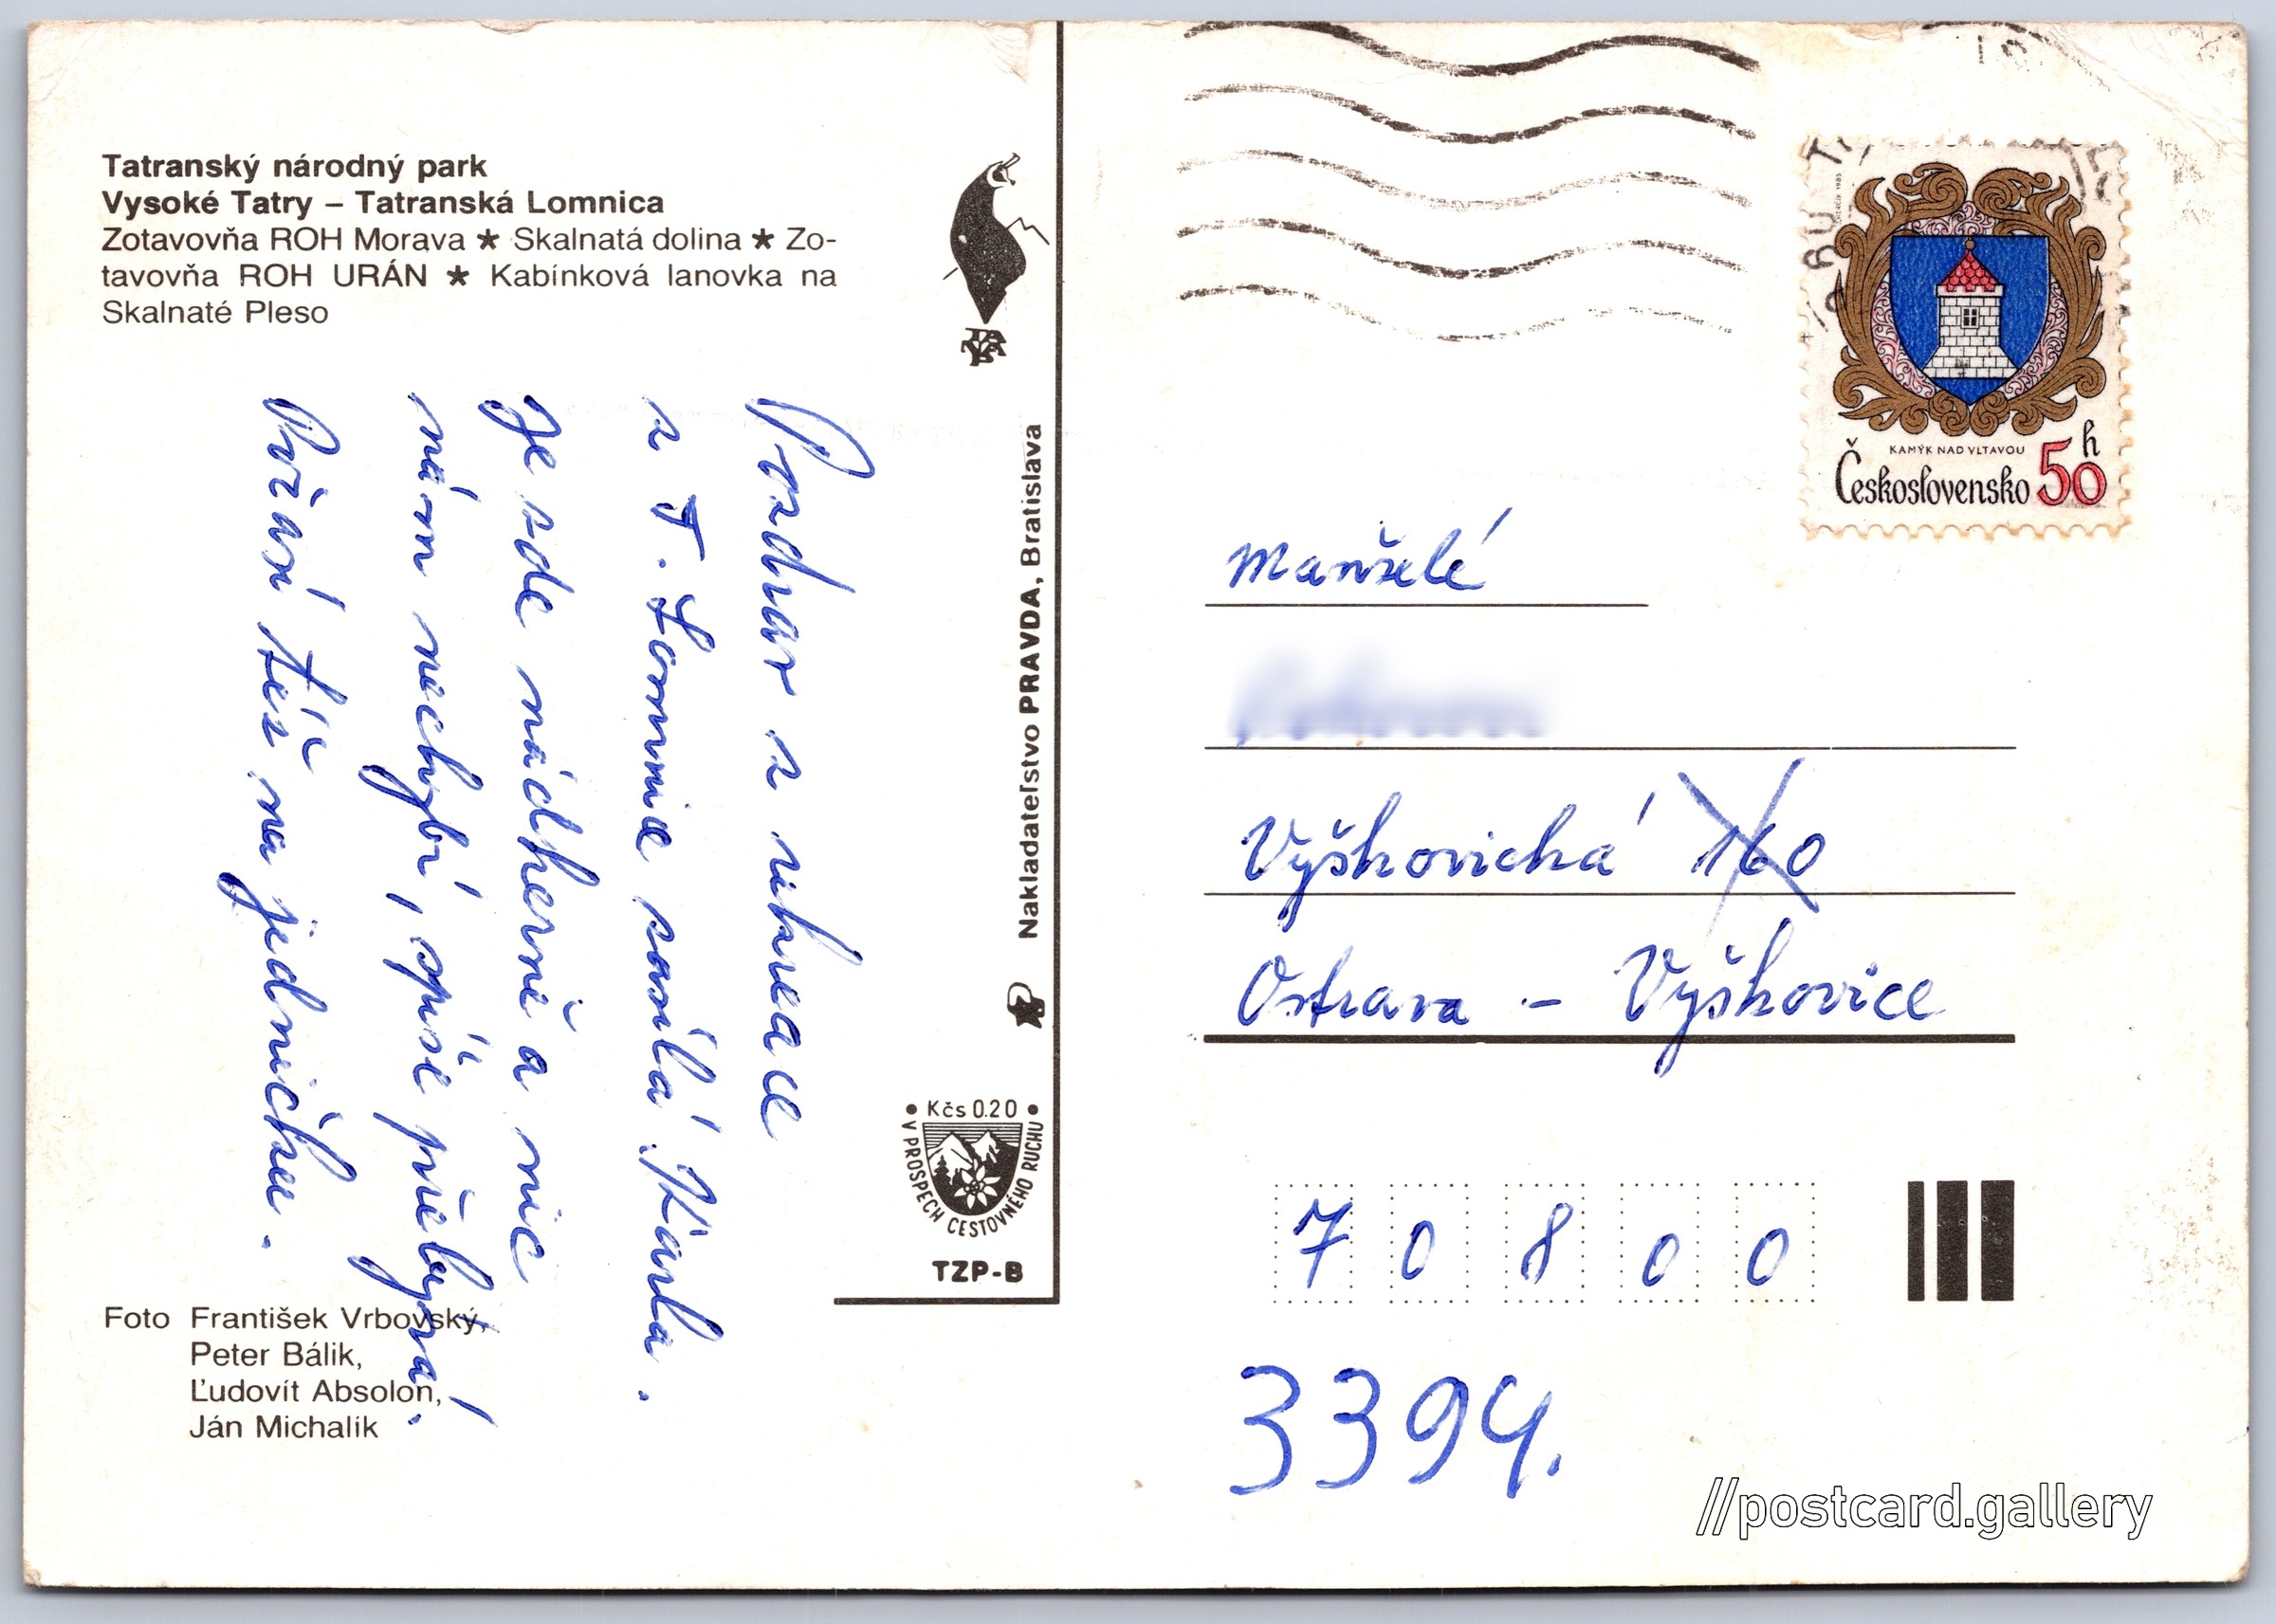 Tatranský národný park
Vysoké Tatry – Tatranská Lomnica
Zotavovňa ROH Morava ★ Skalnatá dolina ★ Zo-
tavovňa ROH URÁN ★ Kabínková lanovka na
Skalnaté Pleso
Pozdrav z rekreace
z T. Lomnice zasílá Karla.
Je zde nádherně a nic
nám nechybí, spíše přebývá.
Počasí též na jedničku.
Foto František Vrbovský,
Peter Bálik,
Ľudovít Absolon,
Ján Michalík
Nakladateľstvo PRAVDA, Bratislava
Kčs 0.20
V PROSPECH CESTOVNÉHO RUCHU
TZP-B
KAMÝK NAD VLTAVOU
Československo 50 h
Manželé
Výškovická 160
Ostrava – Výškovice
7 0 8 0 0
3394.
//postcard.gallery